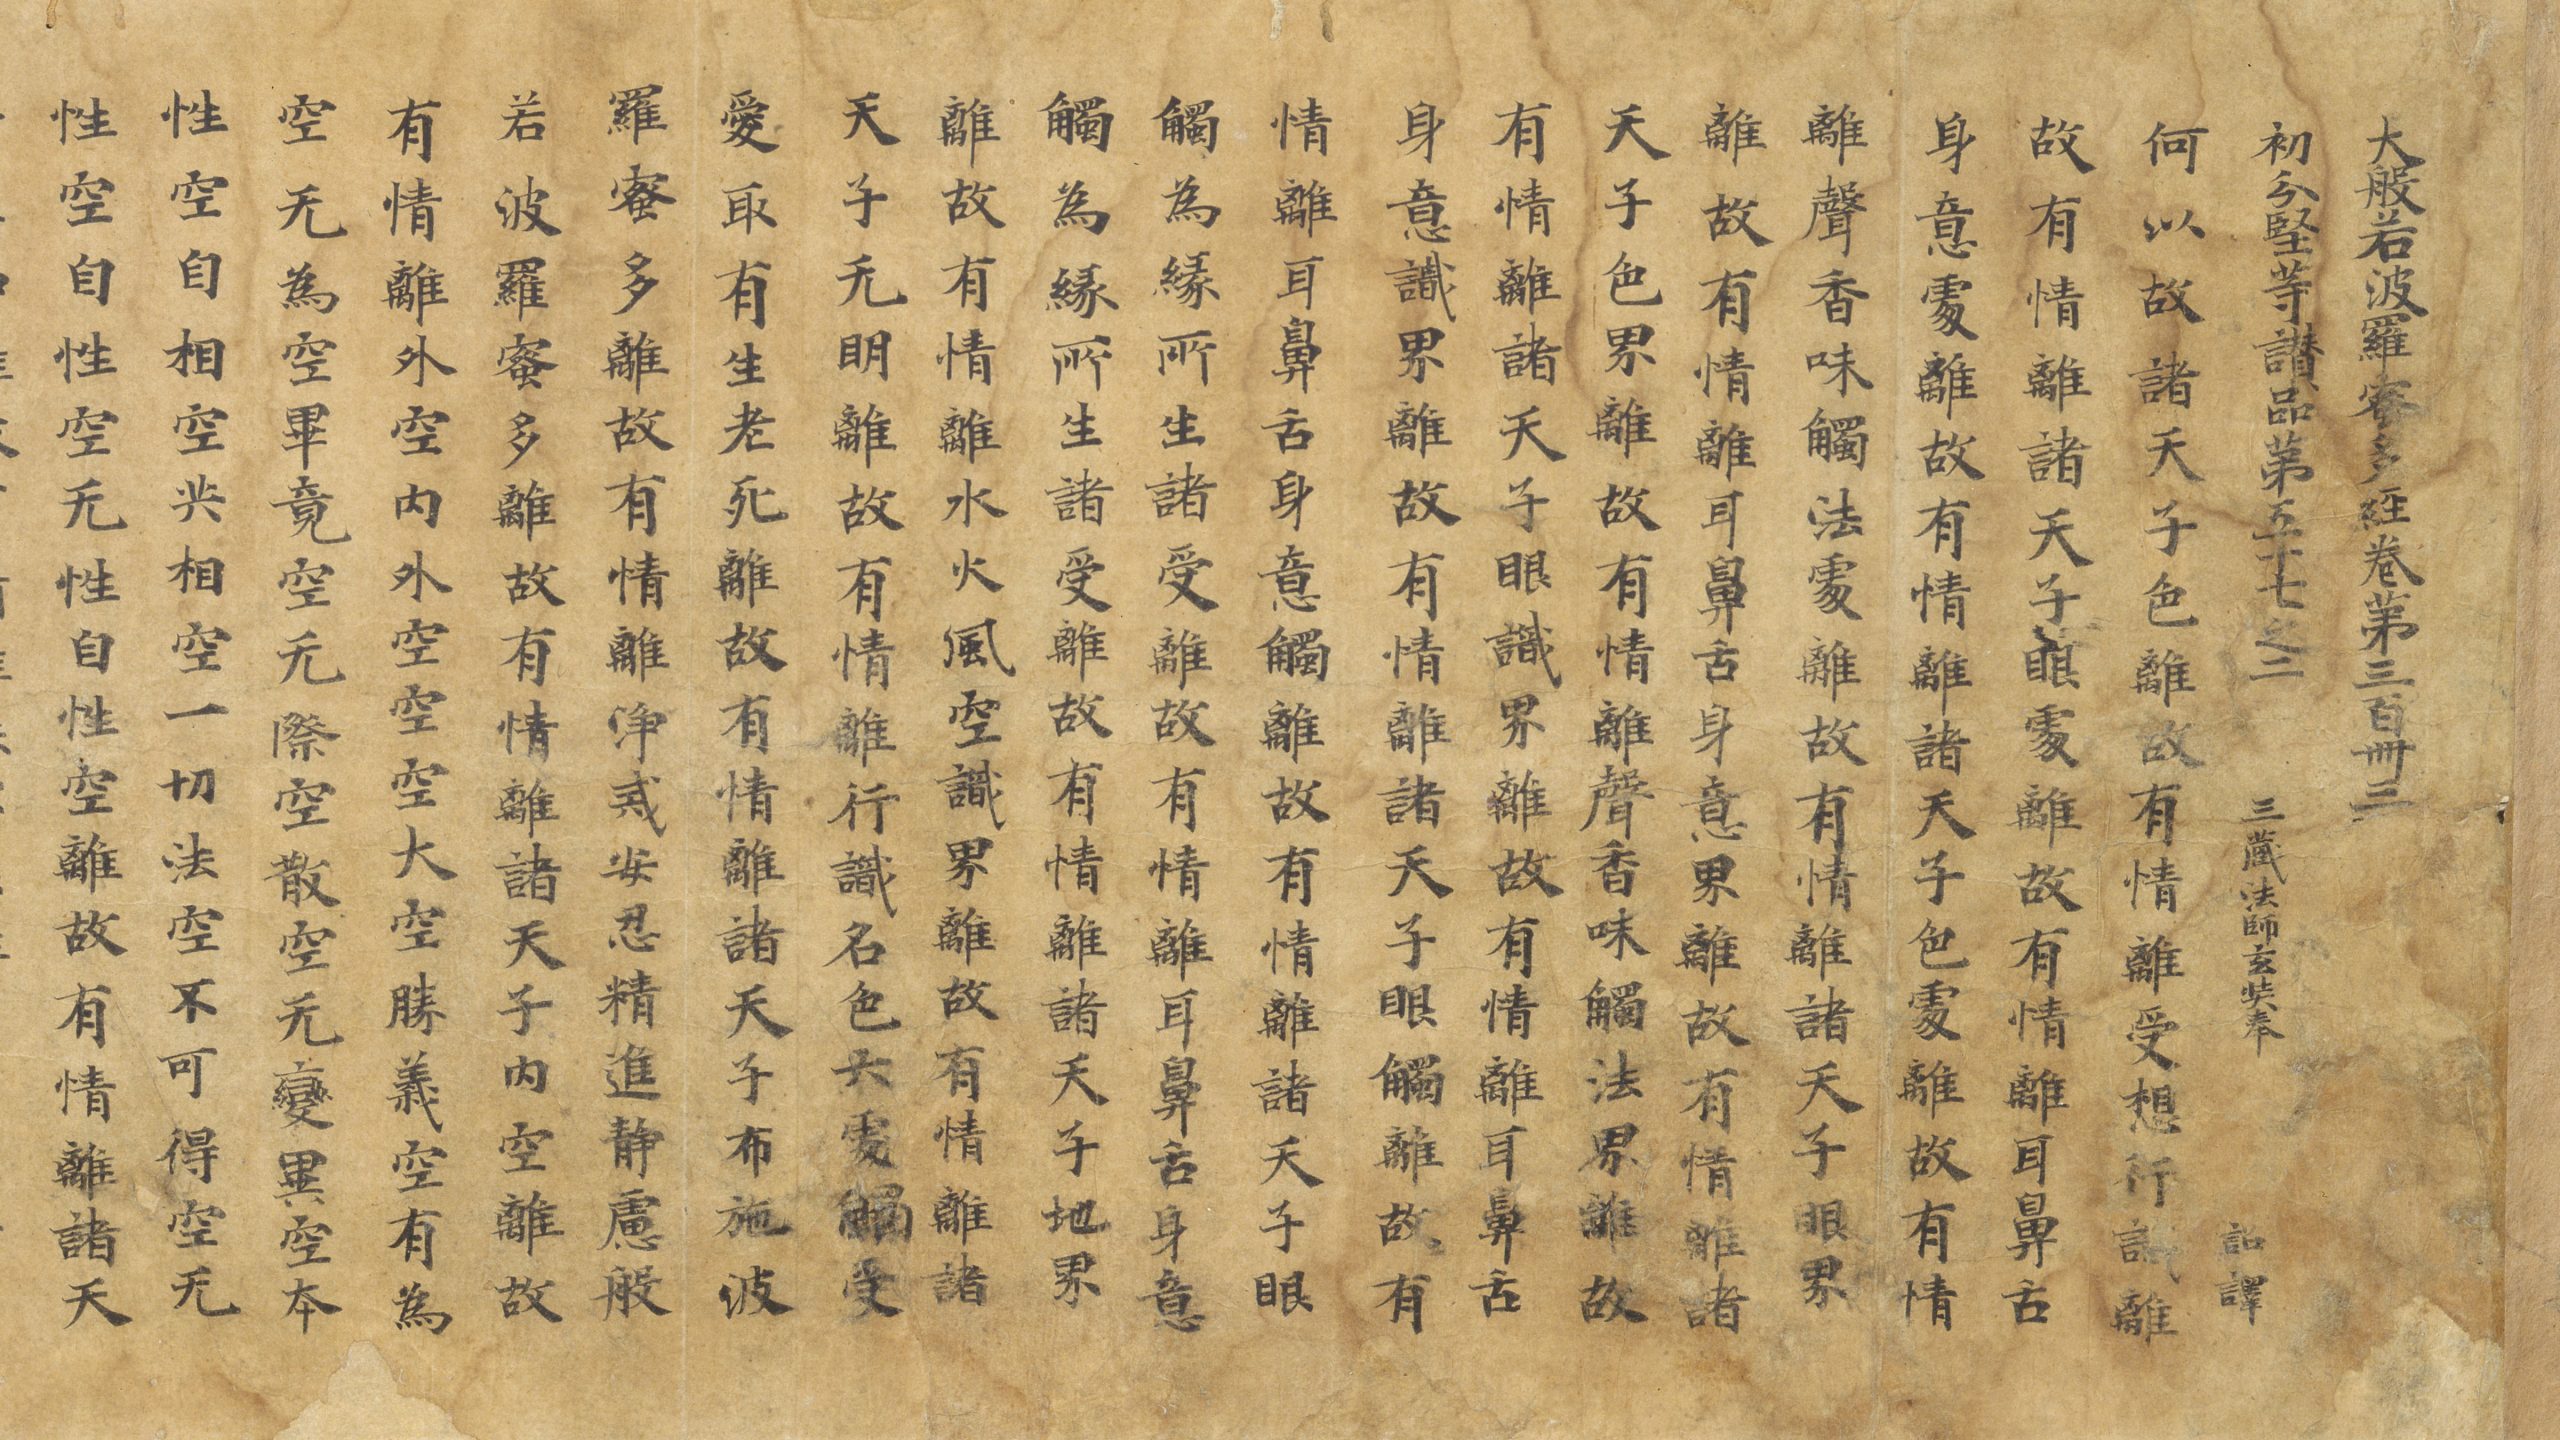 大般若波羅蜜多經卷第三百卌三
初分堅等讃品第五十七之二 三藏法師玄奘奉 詔譯
何以故諸天子色離故有情離受想行識離
故有情離諸天子眼處離故有情離耳鼻舌
身意處離故有情離諸天子色處離故有情
離聲香味觸法處離故有情離諸天子眼界
離故有情離耳鼻舌身意界離故有情離諸
天子色界離故有情離聲香味觸法界離故
有情離諸天子眼識界離故有情離耳鼻舌
身意識界離故有情離諸天子眼觸離故有
情離耳鼻舌身意觸離故有情離諸天子眼
觸為緣所生諸受離故有情離耳鼻舌身意
觸為緣所生諸受離故有情離諸天子地界
離故有情離水火風空識界離故有情離諸
天子无明離故有情離行識名色六處觸受
愛取有生老死離故有情離諸天子布施波
羅蜜多離故有情離淨戒安忍精進靜慮般
若波羅蜜多離故有情離諸天子內空離故
有情離外空內外空空空大空勝義空有為
空无為空畢竟空无際空散空无變異空本
性空自相空共相空一切法空不可得空无
性空自性空无性自性空離故有情離諸天